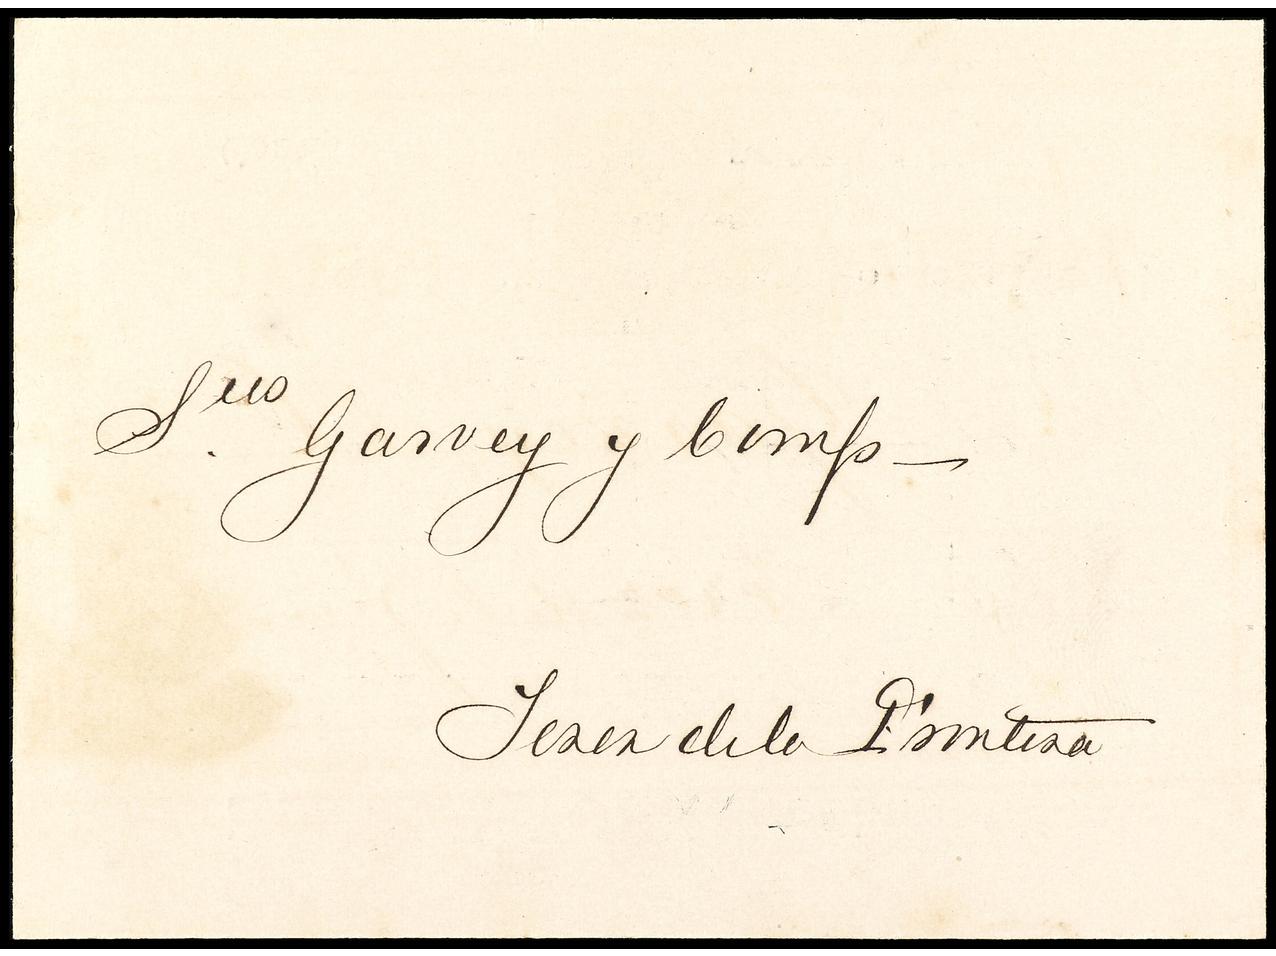 Sres. Garvey y Comp —
Jerez de la Frontera